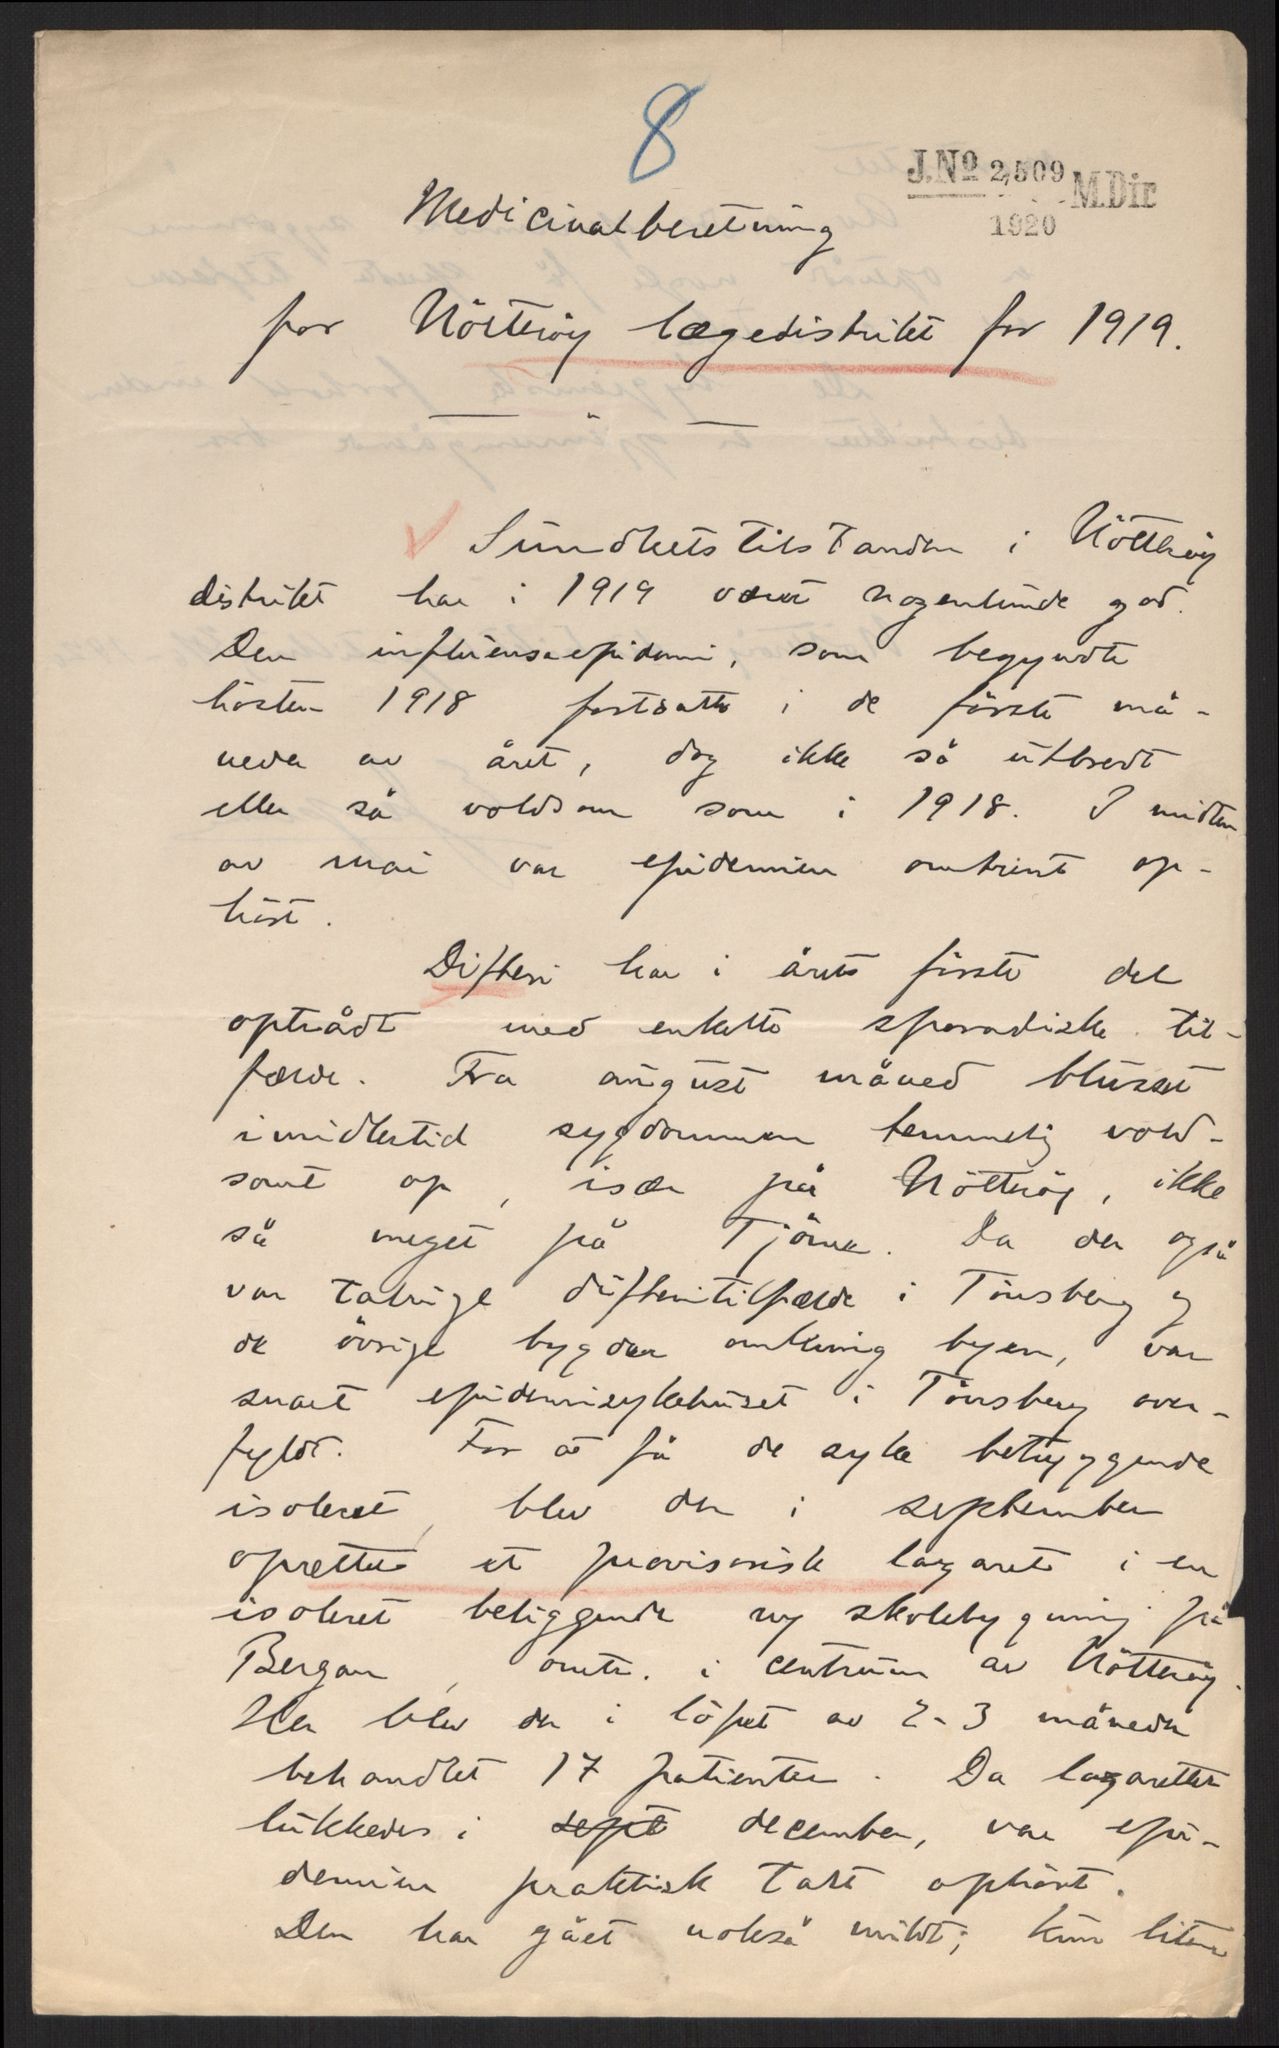 8
J.No 2,509 M.Dir
1920
Medicinalberetning
for Nötteröy lægedistrikt for 1919.
Sundhetstilstanden i Nötteröy
distrikt har i 1919 været nogenlunde god.
Den influensaepidemi, som begyndte
hösten 1918 fortsatte i de förste må-
neder av året, dog ikke så utbredt
eller så voldsom som i 1918. I midten
av mai var epidemien omtrent op-
hört.
Difteri har i årets förste del
optrådt med enkelte sporadiske til-
fælde. Fra august måned blusset
imidlertid sygdommen temmelig vold-
somt op, især på Nötteröy, ikke
så meget på Tjöme. Da der også
var talrige difteritilfælde i Tönsberg og
de övrige bygder omkring byen, var
snart epidemisykehuset i Tönsberg over-
fyldt. For å få de syke betryggende
isoleret, blev der i september
oprettet et provisorisk lazaret i en
isoleret beliggende ny skolebygning på
Bergan, omtr. i centrum av Nötteröy.
Her blev der i löpet av 2-3 måneder
behandlet 17 patienter. Da lazarettet
lukkedes i sept december, var epi-
demien praktisk talt ophört.
Den har gået også mildt; kun